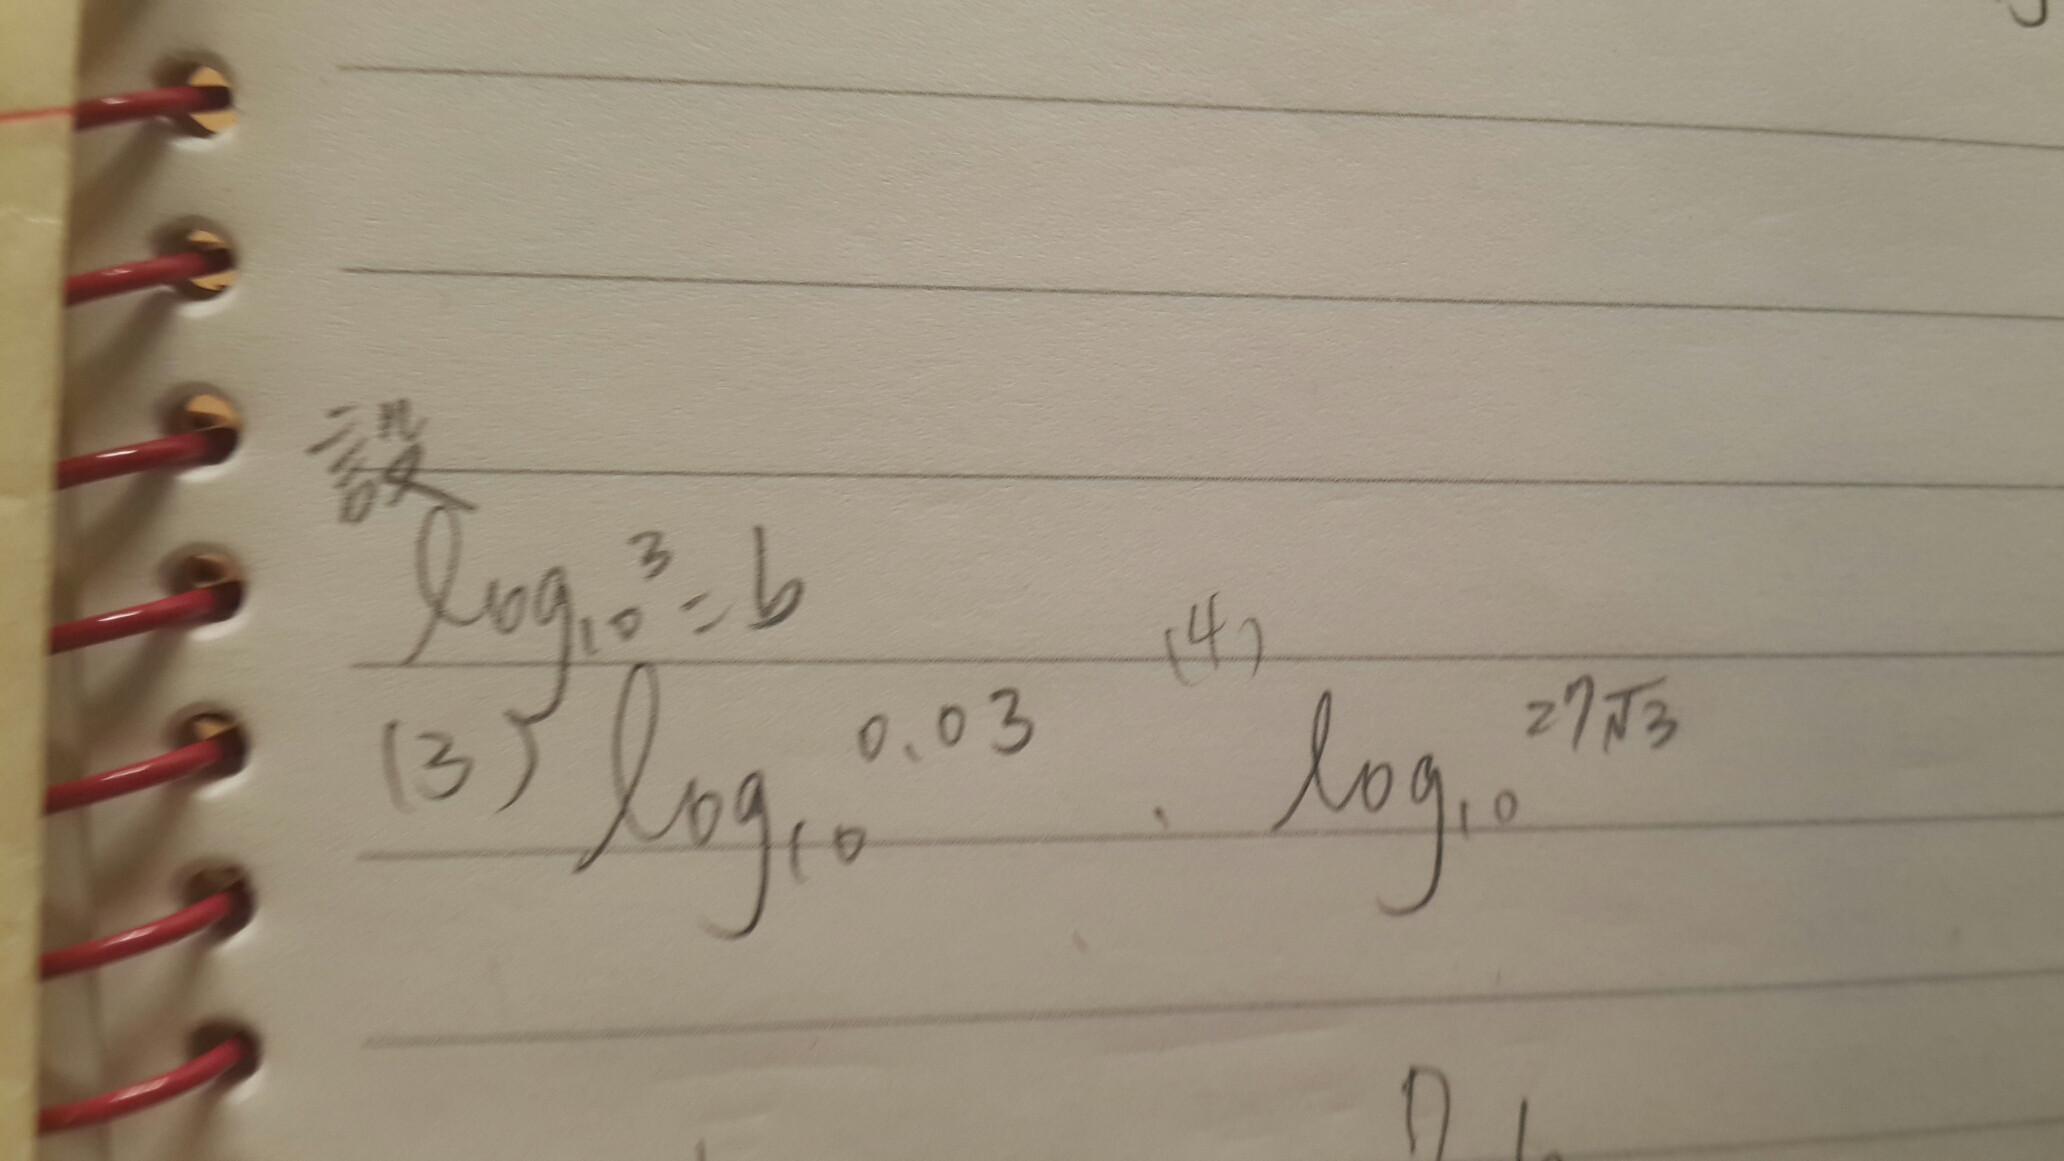 設
log₁₀3=b
(3) log₁₀0.03 (4) log₁₀27√3